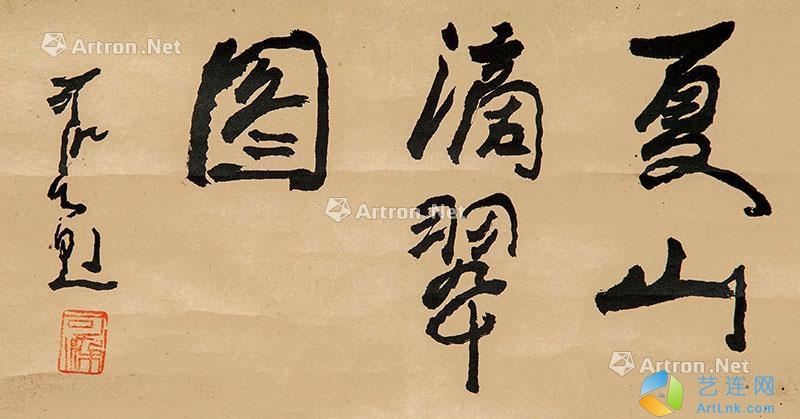 夏山
滴翠
图
可染题
可染
Artron.Net
Artron.Net
Artron.Net
艺连网
ArtLnk.com